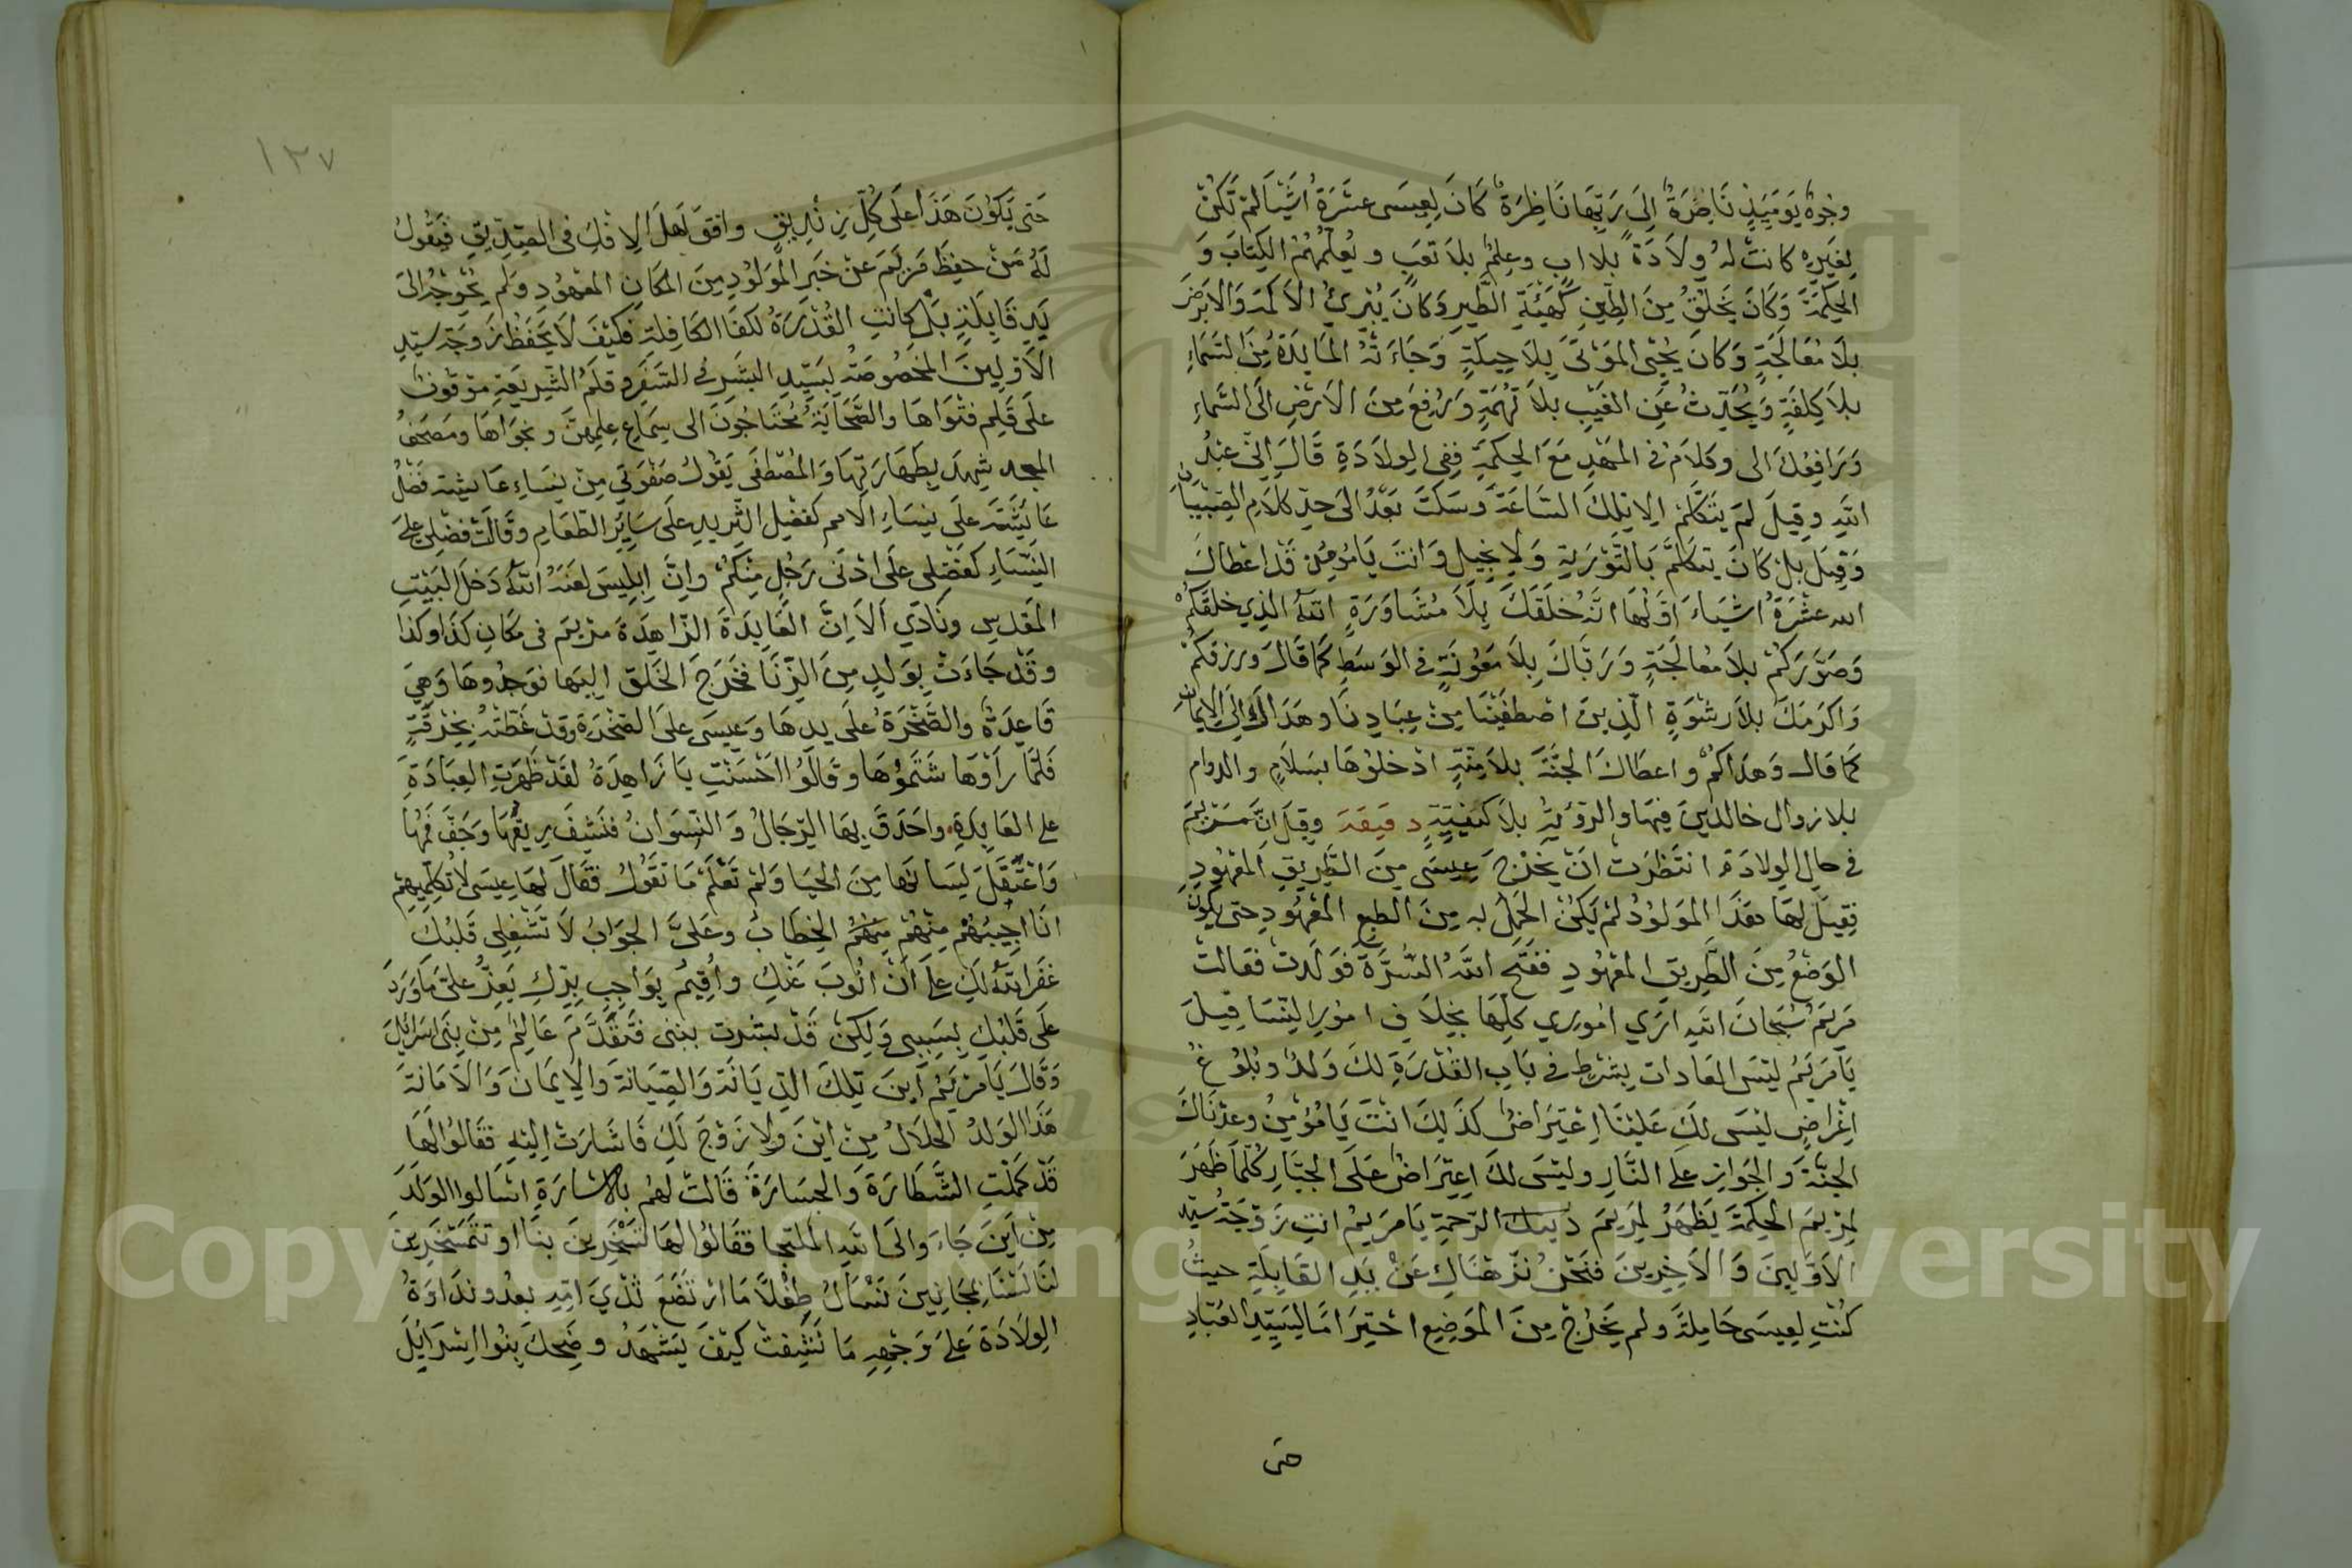 وجوهٌ يومَيِذٍ نَاضِرَةٌ الى رَبِّهَا نَاظِرَةٌ كَانَ لِعِيسَى عشَرَةُ اَشْيَا لم تَكُنْ
لِغَيرِهِ كانتْ لهُ وِلَادَةً بلا ابٍ وعِلمٌ بلا تَعَبٍ ويُعلِّمُهُمُ الكِتَابَ وَ
الحِكمَةَ وَكَانَ يَخلُقُ مِنَ الطِّينِ كَهَيْئَةِ الطَّيرِ وَكَانَ يُبْرِئُ الاكمَهَ وَالابرَصَ
بِلَا مُعَالَجَةٍ وَكانَ يُحْيِى المَوْتَى بِلَا حِيلَةٍ وَجَاءَتْهُ المَايِدَةُ مِنَ السَّمَاءِ
بِلَا كِلفَةٍ وَيُحَدِّثُ عَنِ الغَيْبِ بلا تُهْمَةٍ وَرُفِعَ مِنَ الارْضِ الَى السَّمَاءِ
وَرَافِعُكَ الى وكلَامُ فى المَهْدِ مَعَ الحِكمَةِ فِفى الوِلَادَةِ قَالَ اِنّى عَبْدُ
اللهِ وقِيلَ لَمْ يَتَكَلَّمْ الا تِلكَ السَّاعَةَ وسَكَتَ بَعْدُ الى حدِّ كلَامِ الصِّبْيَانِ
وَقِيلَ بلْ كَانَ يتكلّمُ بالتَّوْرَيةِ وَالانجيلِ وَانتَ يَا مُؤمِنُ قَد اعْطَاكَ
الله عشَرَةُ اشيَاءَ اوّلُهَا انّهُ خَلَقَكَ بِلَا مُشَاوَرَةٍ اللهُ الذِي خلقَكُمْ
وَصَوَّرَكُمْ بلا مُعَالَجَةٍ وَرَبّاكَ بِلا مَعُونَةٍ فى الوَسَطِ كمَا قَالَ ورزقكُمْ
وَاكرَمَكَ بلَا رشْوَةٍ الّذِينَ اصْطَفَيْنَا مِنْ عِبَادِنَا وهَدَاكَ الى الايمَانِ
كمَا قال وَهدَاكُمْ واعطَاكَ الجَنَّةَ بلا مِنّةٍ ادْخلوُهَا بسَلَامٍ والدوام
بلا زوال خالدينَ فِيهَا والرؤيَةُ بلَا كَيْفِيّةٍ دقيقة وقِيلَ انّ مَرْيمَ
فى حالِ الوِلادَة انتَظَرَتْ انْ يَخْرُجَ عِيسَى مِنَ الطَّرِيقِ المعْهُودِ
فَقِيلَ لهَا هَذَا المَولُودُ لمْ يَكُنْ الحَمْلُ به مِنَ الطبعِ المَعْهُودِ حتى يكُونَ
الوَضْعُ مِنَ الطَّرِيقِ المعْهُودِ ففَتَحَ اللهُ السُّرَّةَ فَوَلدتْ فقالتْ
مَرْيَمُ سُبحَانَ اللهِ ارَي امُورِي كلّهَا بخِلَافِ امُورِ النِّسَا قِيلَ
يَامَرْيَمُ ليْسَ العَادات بِشَرْطٍ فى بَابِ القُدْرَةِ لكَ وَلدٌ وبُلوُغُ
اغْرَاضٍ ليْسَ لكِ عَليْنَا اعْتِرَاضٌ كذَلِكَ انتَ يَا مُؤمِنُ وعدْنَاكَ
الجنّةَ والجَوَازِ علَى النَّارِ وليْسَ لكَ اعتِرَاضٌ عَلَى الجَبّارِ كُلّمَا ظَهَرَ
لِمَرْيمَ الحِكمَةَ يَظْهَرُ لِمَرْيمَ الرّحمَةِ يَا مريمُ انتِ زَوْجَةُ سَيّد
الاوّلِينَ وَالاخِرِينَ فنَحْنُ نزّهْنَاكِ عَنْ يَدِ القَابِلَةِ حيثُ
كُنْتِ لِعِيسَى حَامِلَةً ولم يَخْرُجْ مِنَ الموَضِعِ احْتِرَامًا لِسَيّدِ العُبّادِ
حتى
١٢٧
حَتى يَكوُنَ هَذَا على كُلِّ زِنْدِيقٍ وافَقَ اهلَ الافكِ فى الصِّدِّيقِ فيَقُولُ
لَهُ مَنْ حفِظَ مَرْيَمَ عنْ خبَرِ المَوْلوُدِ مِنَ المكَانِ المَعْهُودِ وَلم يُحْوِجْهُ الى
يَدِ قَابِلَةٍ بَلْ كانتِ القُدْرَةُ لهَا الكَافِلَةِ فكيْفَ لا يَحْفَظُ زَوجَة سيّدِ
الاوّلِينَ المخصُوصَةُ بسَيّدِ البشَرِ فى السَّفَرِ وقلَمُ الشّرِيعَةِ موْقوُفٌ
علَى قَلَمِ فتْوَاهَا والصَّحَابَةُ مُحْتَاجُونَ الى سِمَاعِ عِلمِهنّ ونجوَاهَا ومصحَفُ
المجد شهِدَ بِطَهَارَتِهَا وَالمُصْطَفَى يَقوُلُ صَفْوَتى مِنْ نِسَاءِ عَايشة فَضْلُ
عَايِشَةَ علَى نِسَاءِ الامم كفَضْلِ الثّرِيدِ علَى سَايِرِ الطعَامِ وقَالَتْ فضْلى علَى
النِّسَاءِ كفَضْلِى علَى ادْنَى رَجُلٍ مِنْكُمْ وانَّ اِبلِيسَ لعَنَهُ اللهُ دَخلَ البَيْتِ
المَقدِسِ ونَادَي الَا انَّ العَابِدَةَ الزّاهِدَةَ مرْيمَ فى مكانِ كذَا وكذا
وقَدْ جَاءَتْ بِوَلدٍ مِنَ الزِّنَا فخَرَجَ الخَلق اليهَا فوَجدُوهَا وَهِيَ
قَاعِدَةٌ والصَّخْرَةُ علَى يدِهَا وَعِيسَى علىَ الصّخْرَةِ وقدْ غَطّتْهُ بِخِرْقَةٍ
فَلمّا رَأوْهَا شَتَمُوْهَا وقَالوُا احْسَنْتِ يَا زَاهِدَةُ لقَدْ ظَهَرَتِ العِبَادَةِ
على العَابِدَةِ واحَدَقَ بِهَا الرّجَالُ وَالنّسوَانُ فنَشِفَ رِيقُهَا وَجَفَّ فَمُهَا
وَاعْتَقَلَ لِسَانُهَا مِنَ الحَيَا وَلمْ تَعْلَمْ مَا تَقُولُ فقَالَ لهَا عِيسَى لا تُكلِّمِيهِمْ
انَا اُجِيبُهُمْ مِنْهُمْ مِنْهُمُ الخِطَابُ وعَلىَّ الجَوَابُ لَا تَشْغِلِى قَلبُكِ
غفَرَ اللهُ لَكِ على انْ انُوبَ عَنْكِ واُقِيمُ بِوَاجِبِ بِرِّكِ يَعِزُّ علىَّ مَا وَرَدَ
علَى قَلبُكِ بِسَبَبِى وَلكِنْ قَدْ بُشرت بنبى فتَقَدَّمَ عَالِمٌ مِنْ بَنى اسرايلَ
وَقَالَ يَا مَرْيَمُ اَيْنَ تِلكَ الدِّيَانَةَ وَالصِّيَانةَ وَالايمَانَ وَالامَانةَ
هَذَا الوَلدُ الحلَالُ مِنْ ايْنَ ولا زَوْجَ لَكِ فَاشَارَتْ اِليْهِ فقَالوُا لهَا
قَدْ كَمُلَتِ الشّطَارَةَ وَالجَسَارَةَ قَالتْ لهُم بالاشارَةِ اسْالوا الوَلَدَ
مِنْ اَينَ جَاءَ وَالى اللهِ المُلتجا فقَالوُا لهَا تَسْخَرِينَ بنَا او تتَمَسْخَرِينَ
لنَا لَسْنَا بمجَانِينَ نَسْالُ طِفْلًا مَا ارْتَضَعَ ثَدْيَ امّهِ بعْدُ ونَدَاوَةُ
الوِلَادَة عَلَى وَجْهِهِ مَا نَشِفتْ كَيْفَ يَشْهَدُ وضَحِكَ بنُوا اسْرَايلَ
Copyright © King Saud University